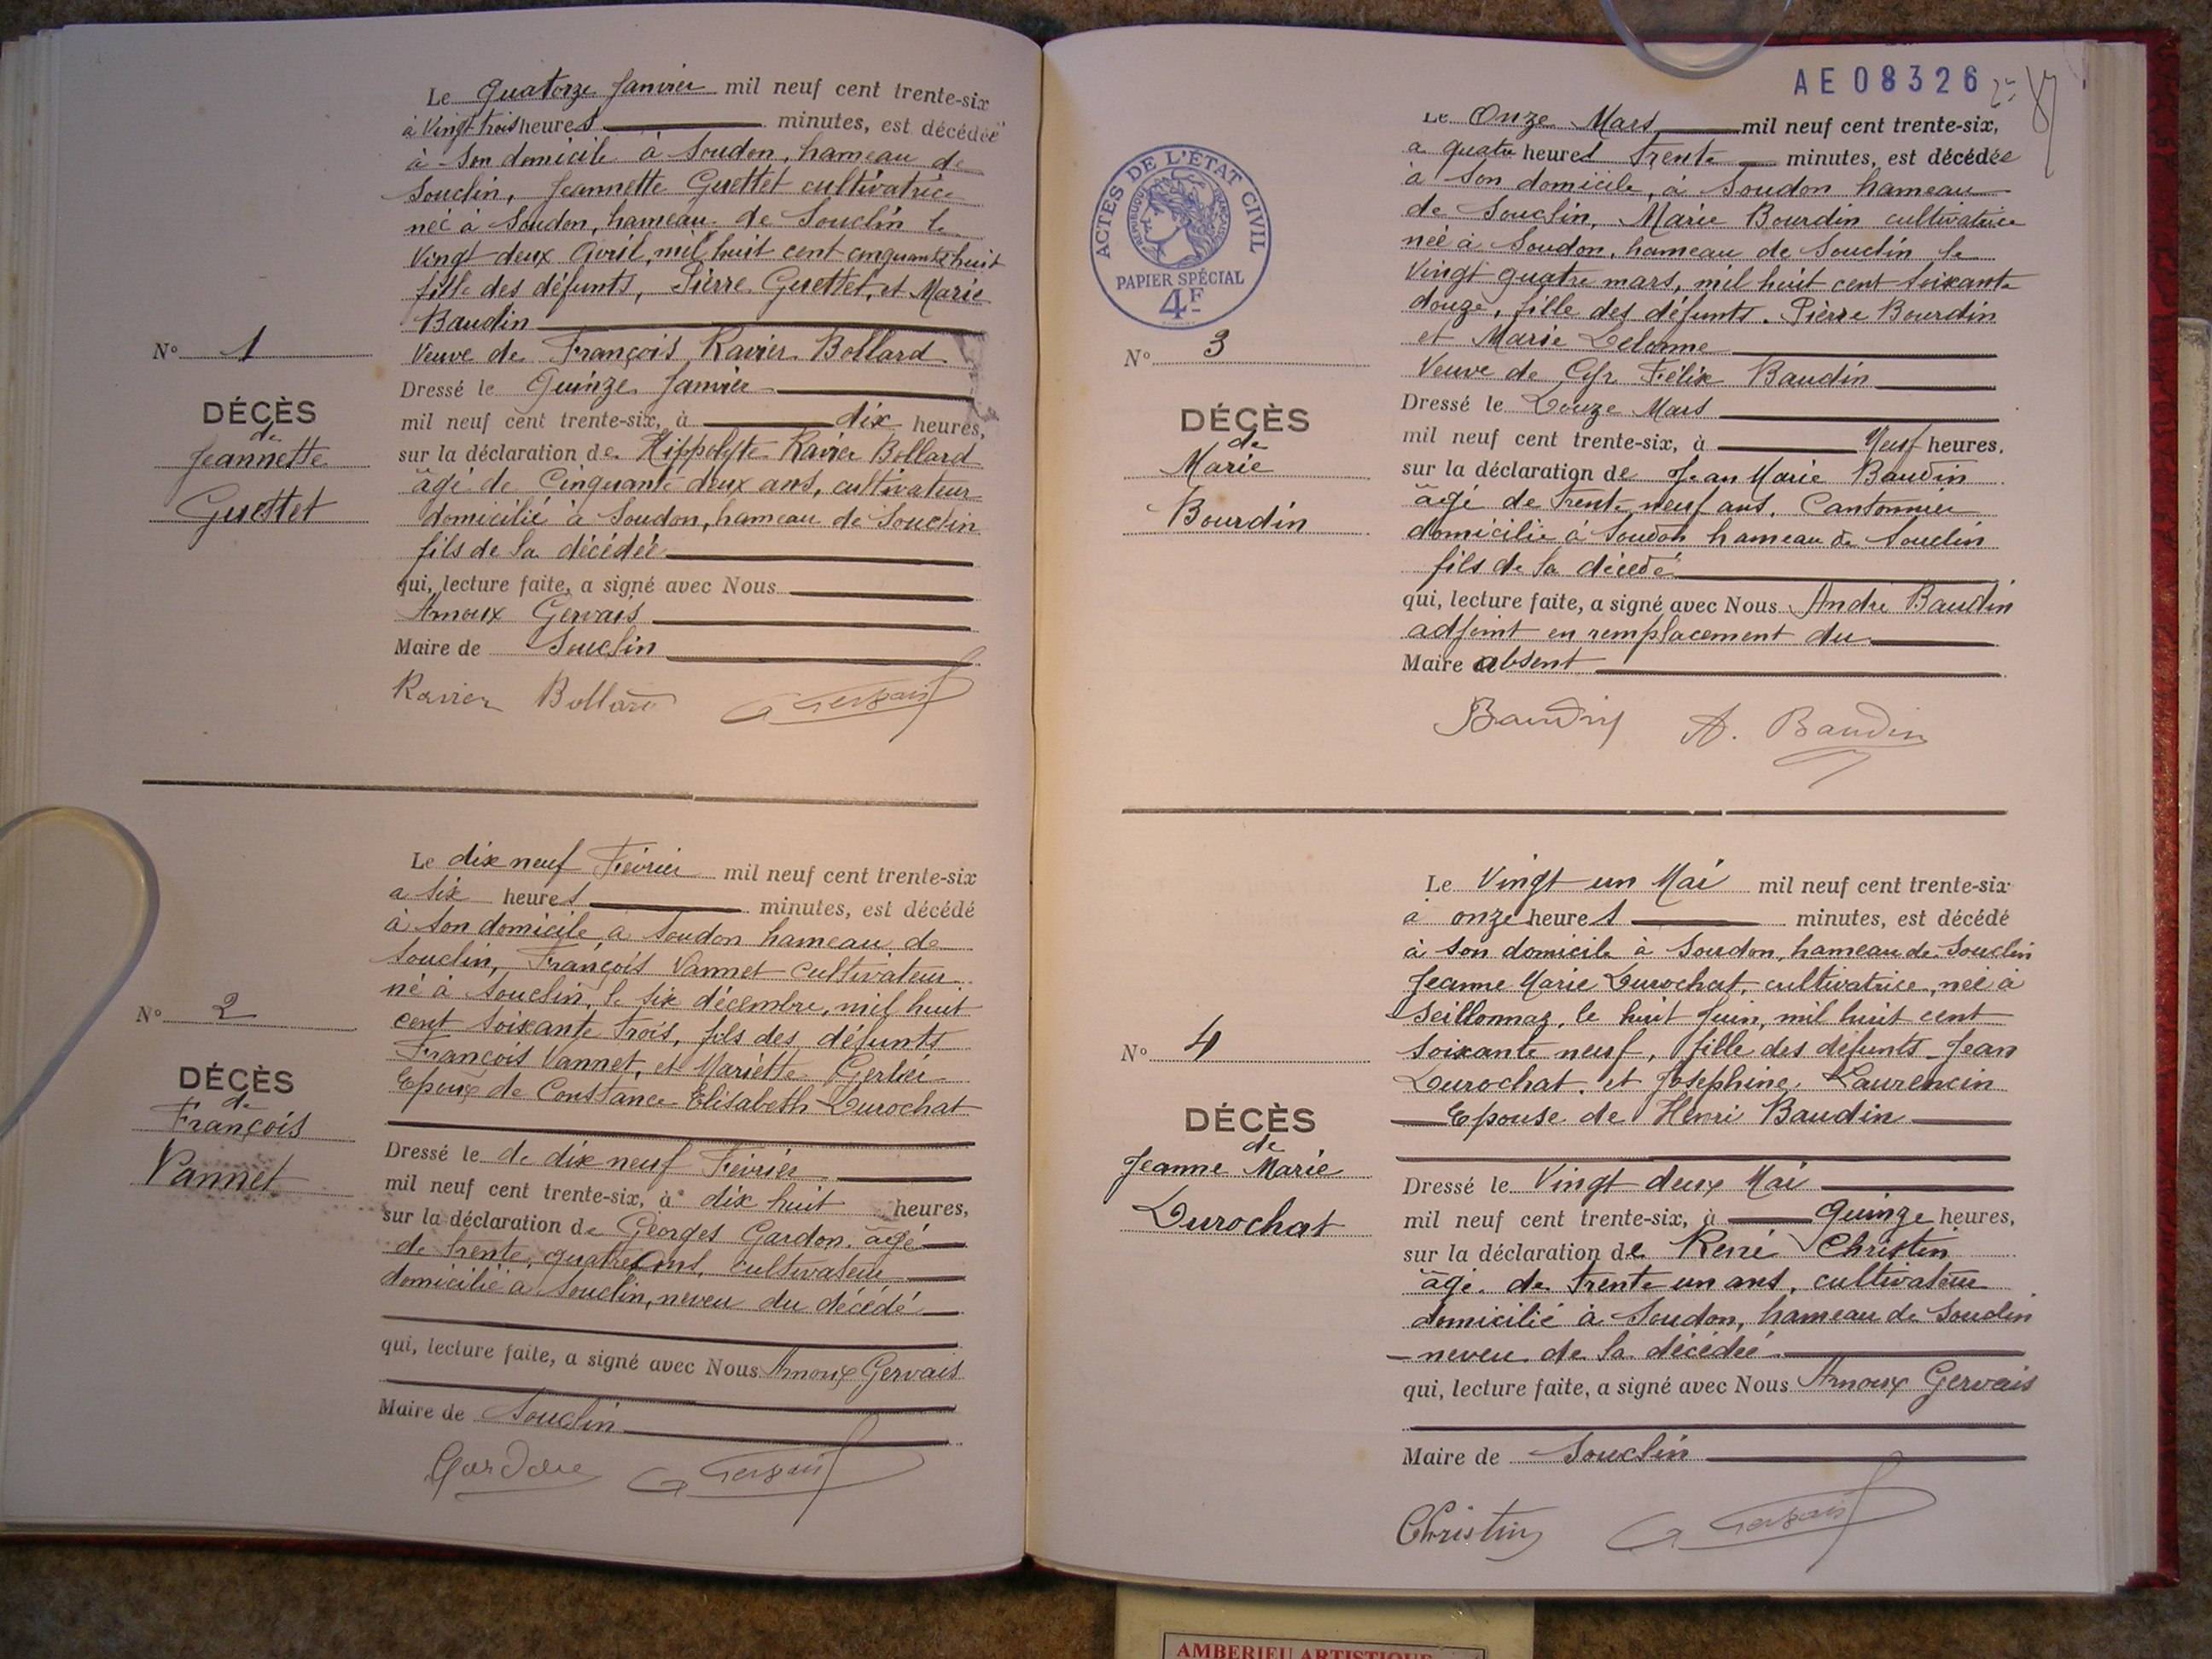 Le quatorze Janvier mil neuf cent trente-six
à Vingt trois heures minutes, est décédée
à son domicile à Soudon, hameau de
Souclin, Jeannette Guettet cultivatrice
née à Soudon, hameau de Souclin le
Vingt deux Avril, mil huit cent cinquante huit
fille des défunts, Pierre Guettet, et Marie
Baudin
Veuve de François Ravier Bollard
Dressé le Quinze Janvier
mil neuf cent trente-six, à dix heures,
sur la déclaration de Hippolyte Ravier Bollard
âgé de Cinquante deux ans, cultivateur
domicilié à Soudon, hameau de Souclin
fils de la décédée
qui, lecture faite, a signé avec Nous
Arnoux Gervais
Maire de Souclin
Ravier Bollard G Gervais
N° 1
DÉCÈS
de
Jeannette
Guettet
Le dix neuf Février mil neuf cent trente-six
a six heures minutes, est décédé
à son domicile à Soudon hameau de
Souclin, François Vannet cultivateur
né à Souclin, le six décembre, mil huit
cent soixante trois, fils des défunts
François Vannet, et Mariette Gerlier
Epoux de Constance Elisabeth Durochat
Dressé le de dix neuf Février
mil neuf cent trente-six, à dix huit heures,
sur la déclaration de Georges Gardon, âgé
de trente, quatre ans, cultivateur
domicilié à Souclin, neveu du décédé
qui, lecture faite, a signé avec Nous Arnoux Gervais
Maire de Souclin
Gardon G Gervais
N° 2
DÉCÈS
de
François
Vannet
AE08326
ACTES DE L'ÉTAT CIVIL
RÉPUBLIQUE FRANÇAISE
PAPIER SPÉCIAL
4F
Le Onze Mars mil neuf cent trente-six,
a quatre heures trente minutes, est décédée
à son domicile, à Soudon hameau
de Souclin, Marie Bourdin cultivatrice
née à Soudon, hameau de Souclin le
Vingt quatre mars, mil huit cent soixante
douze, fille des défunts. Pierre Bourdin
et Marie Delorme
Veuve de Félix Baudin
Dressé le Douze Mars
mil neuf cent trente-six, à Neuf heures,
sur la déclaration de Jean Marie Baudin
âgé de trente neuf ans, Cantonnier
domicilié à Soudon hameau de Souclin
fils de la décédé
qui, lecture faite, a signé avec Nous André Baudin
adjoint en remplacement du
Maire absent
Baudin A. Baudin
N° 3
DÉCÈS
de
Marie
Bourdin
Le Vingt un Mai mil neuf cent trente-six
à onze heures minutes, est décédé
à son domicile à Soudon, hameau de Souclin
Jeanne Marie Durochat, cultivatrice, née à
Seillonnaz, le huit Juin, mil huit cent
soixante neuf, fille des défunts Jean
Durochat, et Joséphine, Laurencin
Epouse de Henri Baudin
Dressé le Vingt deux Mai
mil neuf cent trente-six, à Quinze heures,
sur la déclaration de René Christin
âgé de trente un ans, cultivateur
domicilié à Soudon, hameau de Souclin
neveu de la décédée
qui, lecture faite, a signé avec Nous Arnoux Gervais
Maire de Souclin
Christin G Gervais
N° 4
DÉCÈS
de
Jeanne Marie
Durochat
AMBERIEU ARTISTIQUE